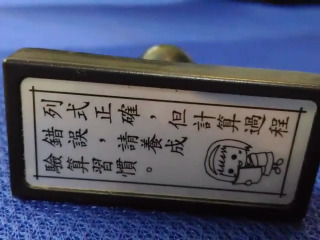 列式正確，但計算過程
錯誤，請養成
驗算習慣。